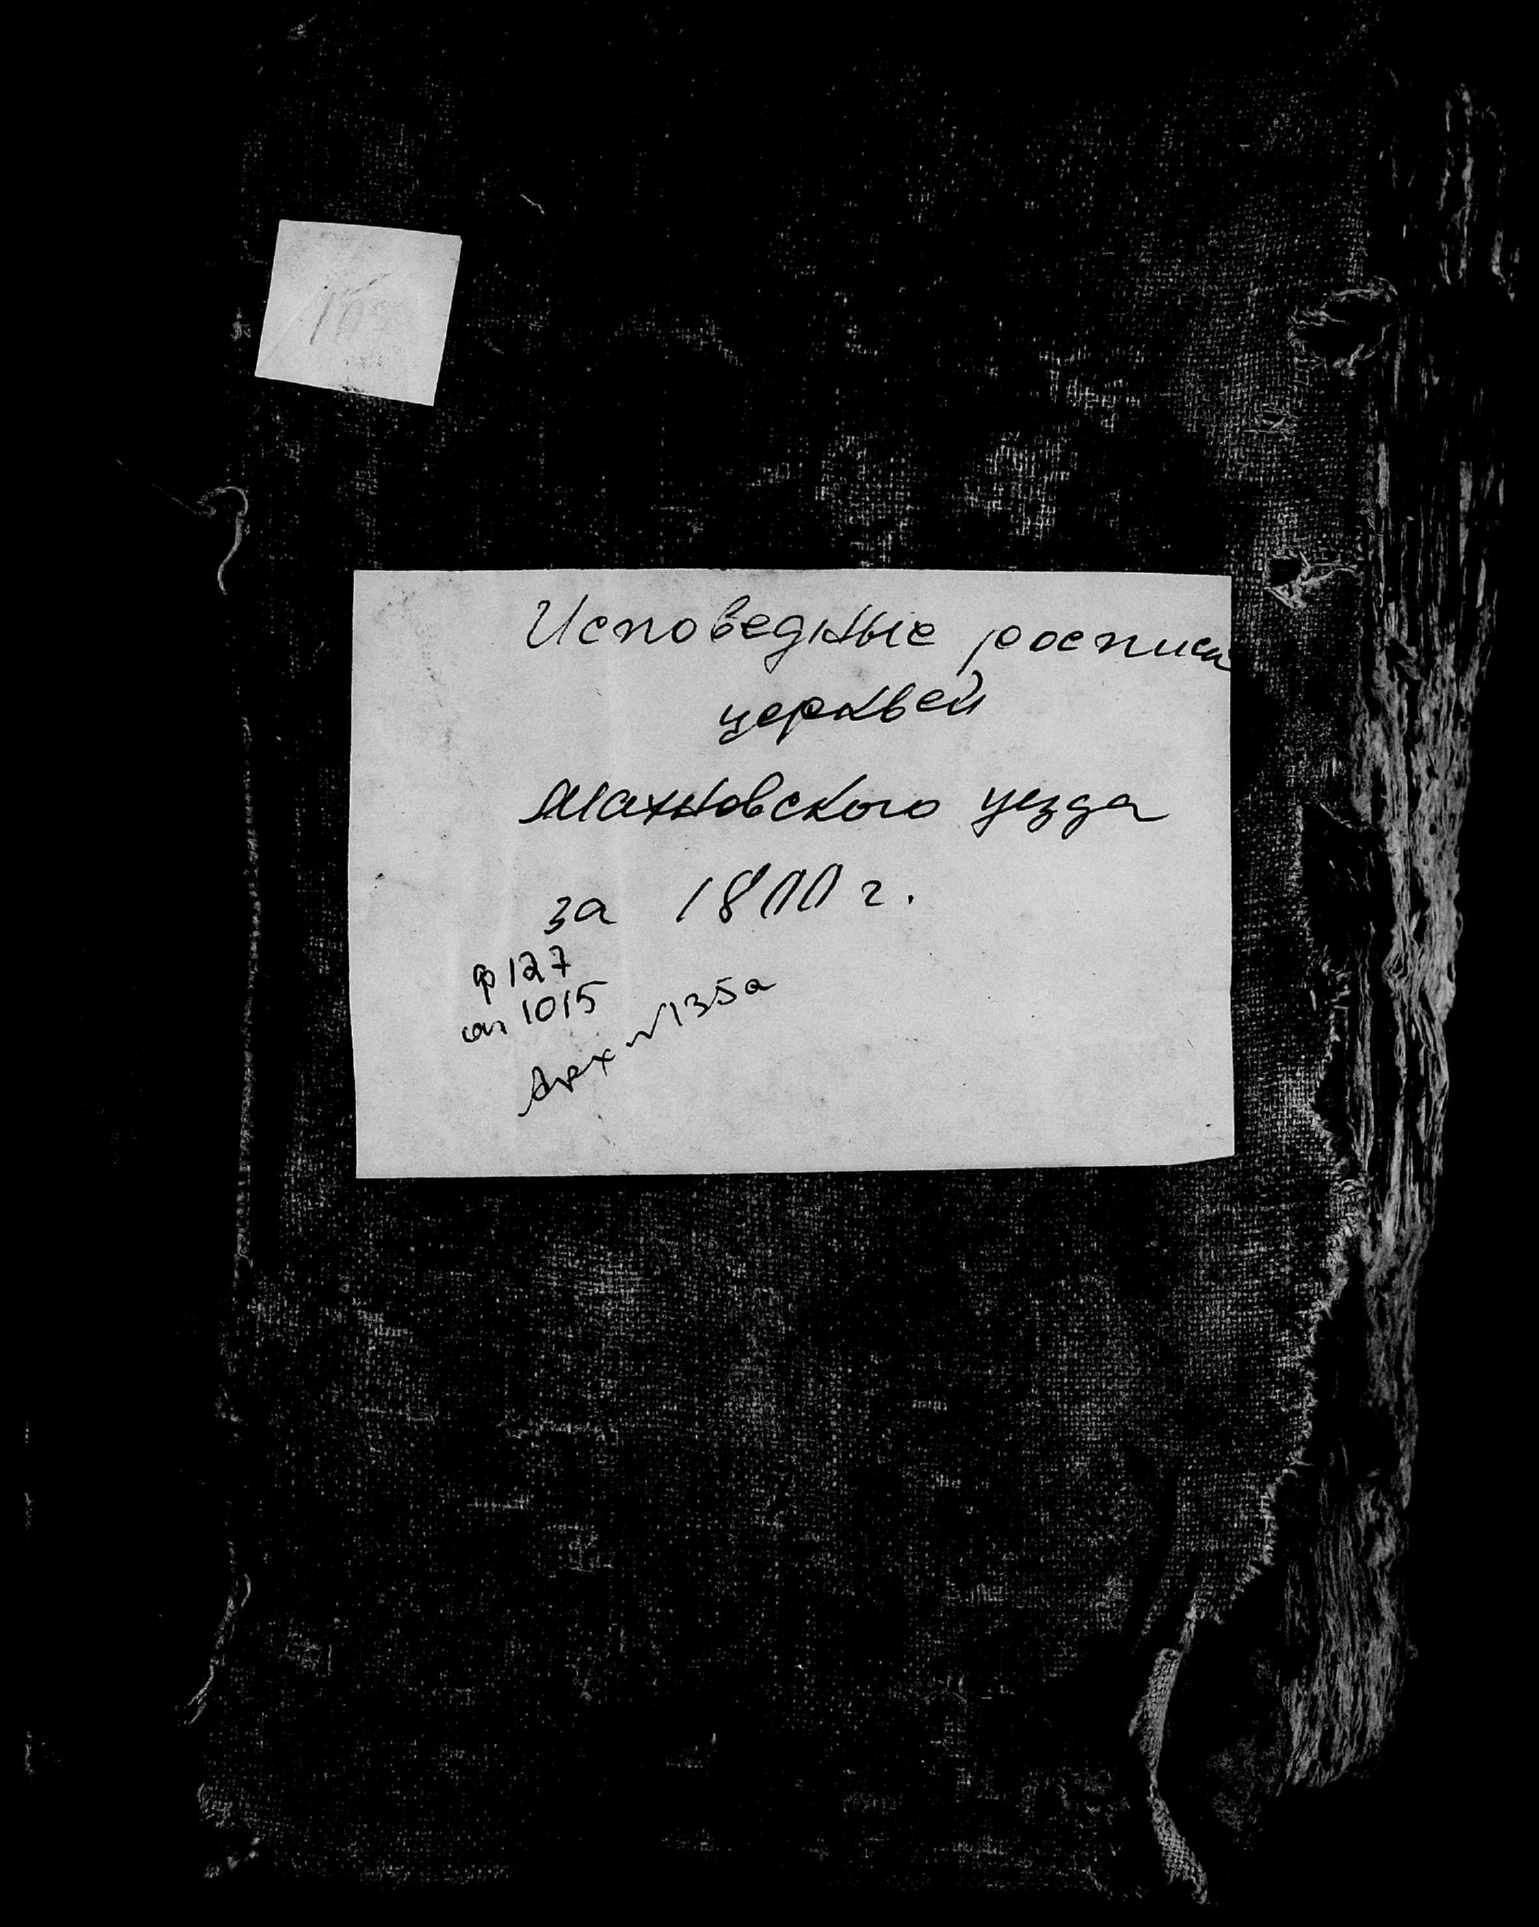 Исповедные росписи
церквей
Махновского уезда
за 1800 г.
ф 127
оп 1015
Арх №135а